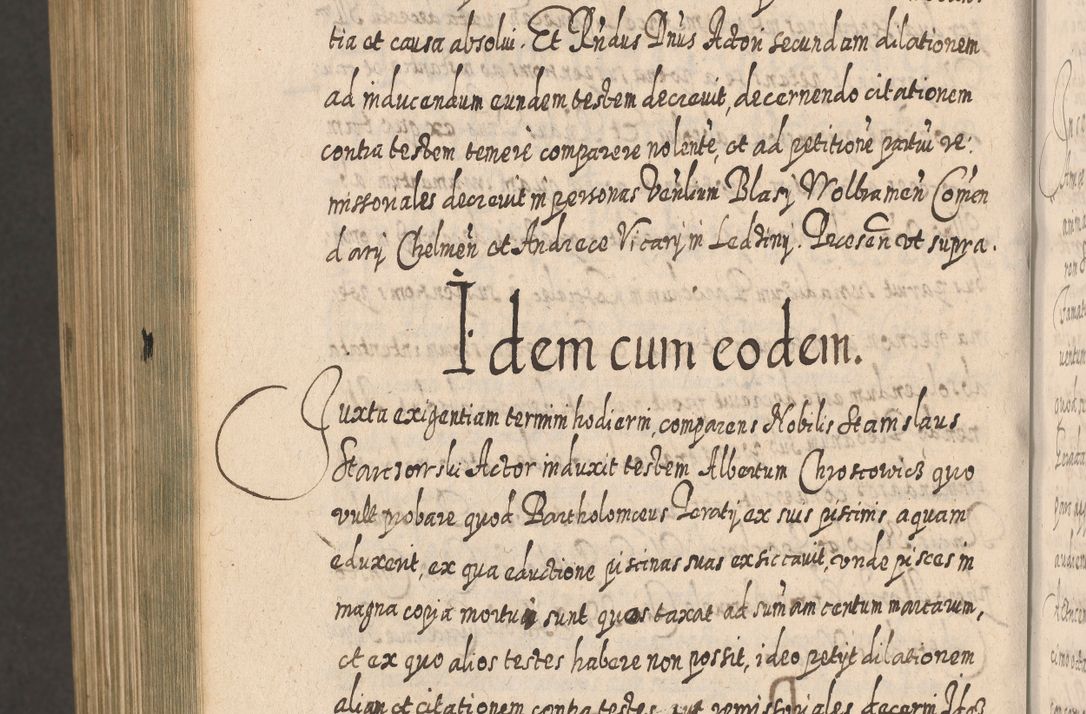 tia et causa absolui. Et Rndus Dnus Actori secundam dilationem
ad inducendum eundem testem decreuit, decernendo citationem
contra testem temerè comparere nolente, et ad petitione partiu re:
missoriales decreuit in personas Venlium Blasij Wolbramen Comen
darij Chelmen et Andreae Vicarij in Ledziny. Praesen ut supra.
Idem cum eodem.
Juxta exigentiam termini hodierni, comparens Nobilis Stanislaus
Starczowski Actor induxit testem Albertum Chroscowicz quo
vult probare quod Bartholomaeus Ieratij, ex suis piscinis aquam
eduxerit, ex qua eductione piscinas suas exsiccauit, vnde pisces in
magna copia mortui sunt quos taxat ad sumam centum marcarum,
et ex quo alios testes habere non possit, ideo petijt dilationem
aliam et citationem contra testes, aut remissoriales decerni Ifas